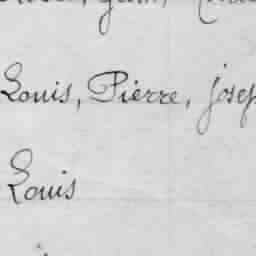 Louis, Pierre, Josep
Louis